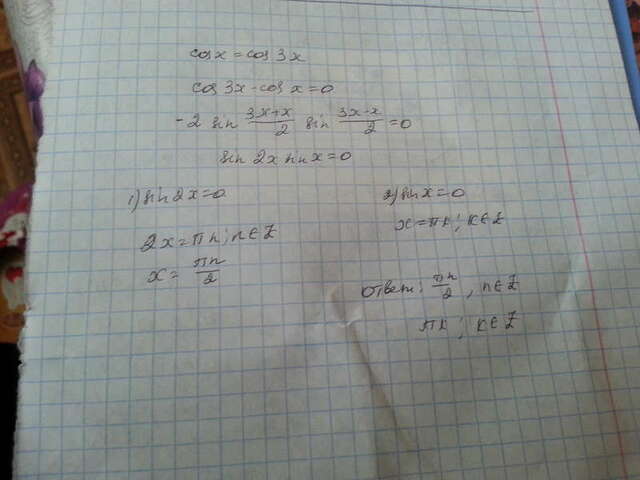 cos x = cos 3x
cos 3x - cos x = 0
-2 sin (3x+x)/2 sin (3x-x)/2 = 0
sin 2x sin x = 0
1) sin 2x = 0
2x = πn; n∈Z
x = πn/2
2) sin x = 0
x = πk; k∈Z
ответ: πn/2, n∈Z
πk; k∈Z